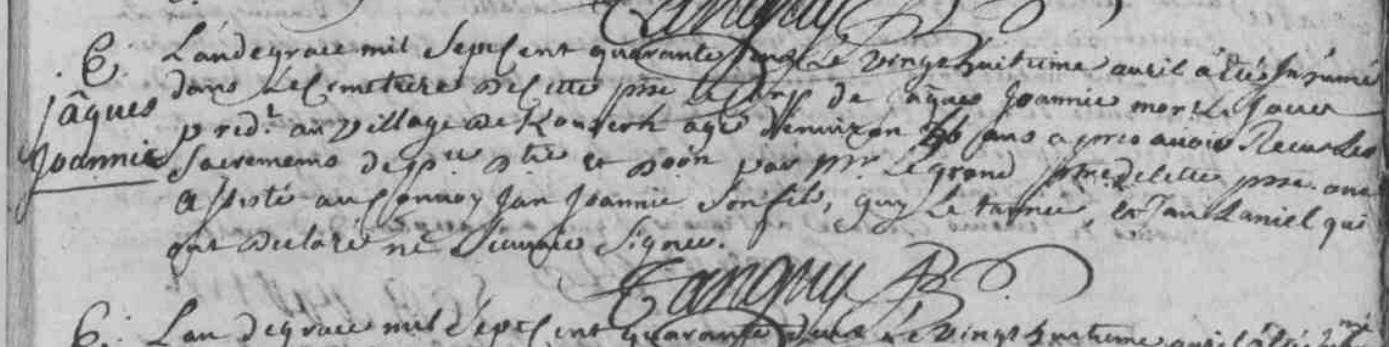 Tanguy
6. L'an de grace mil sept cent quarante deux le vingt huitieme avril a été Inhumé
Jâques dans le Cimetiere de cette psse le corps de Jâques Joannic mort le jour
Joannic pred.t au village de age d'environ ans apres avoir Recu Les
Sacrements de et par mr. Le grand ptre de cette psse. ont
assisté au Convoy Jan Joannic son fils, Guy Le et Jan Laniel qui
ont declaré ne Sçavoir Signer.
Tanguy
6. L'an de grace mil sept cent quarante deux le vingt huitieme avril a été